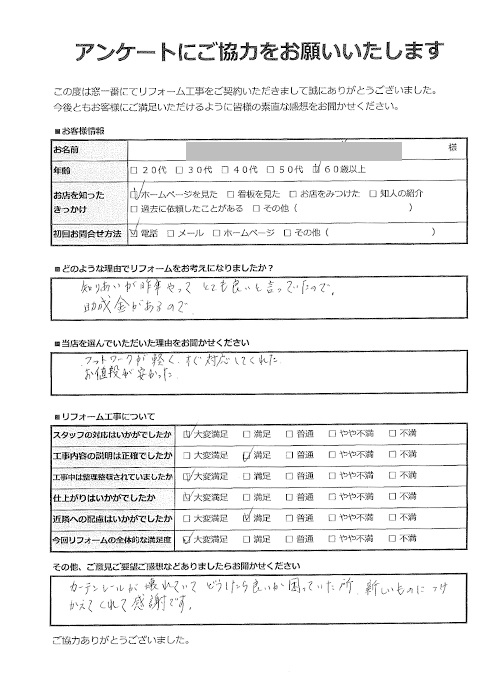 アンケートにご協力をお願いいたします
この度は窓一番にてリフォーム工事をご契約いただきまして誠にありがとうございました。
今後ともお客様にご満足いただけるように皆様の素直な感想をお聞かせください。
■お客様情報
お名前 様
年齢 □20代 □30代 □40代 □50代 ☑60歳以上
お店を知ったきっかけ ☑ホームページを見た □看板を見た □お店をみつけた □知人の紹介
□過去に依頼したことがある □その他（ ）
初回お問合せ方法 ☑電話 □メール □ホームページ □その他（ ）
■どのような理由でリフォームをお考えになりましたか？
知りあいが昨年やって とても良いと言っていたので。
助成金があるので
■当店を選んでいただいた理由をお聞かせください
フットワークが軽く、すぐ対応してくれた
お値段が安かった
■リフォーム工事について
スタッフの対応はいかがでしたか ☑大変満足 □満足 □普通 □やや不満 □不満
工事内容の説明は正確でしたか □大変満足 ☑満足 □普通 □やや不満 □不満
工事中は整理整頓されていましたか ☑大変満足 □満足 □普通 □やや不満 □不満
仕上がりはいかがでしたか ☑大変満足 □満足 □普通 □やや不満 □不満
近隣への配慮はいかがでしたか □大変満足 ☑満足 □普通 □やや不満 □不満
今回リフォームの全体的な満足度 ☑大変満足 □満足 □普通 □やや不満 □不満
その他、ご意見ご要望ご感想などありましたらお聞かせください
カーテンレールが壊れていて どうしたら良いか困っていた所、新しいものにつけ
かえてくれて感謝です。
ご協力ありがとうございました。